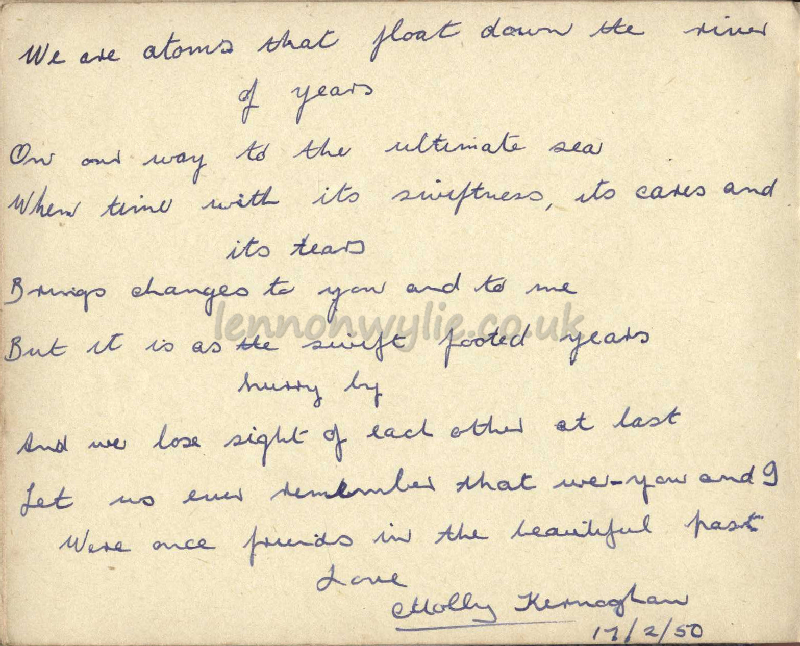 We are atoms that float down the river
of years
On our way to the ultimate sea
When time with its swiftness, its cares and
its tears
Brings changes to you and to me
But it is as the swift footed years
hurry by
And we lose sight of each other at last
Let us ever remember that we-you and I
Were once friends in the beautiful past
Love
Molly Kernoghan
17/2/50
lennonwylie.co.uk